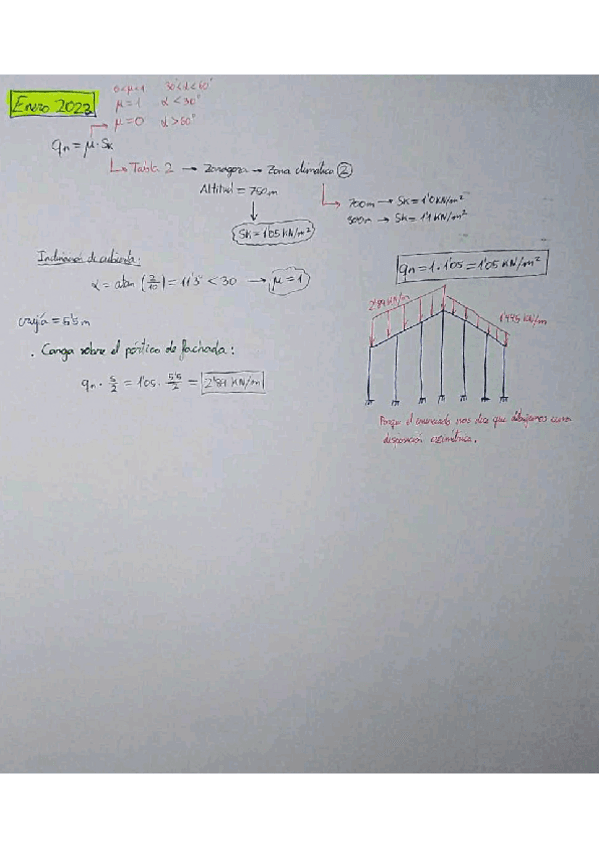 Enero 2023
0<μ<1 30°<α<60°
μ=1 α<30°
μ=0 α>60°
qn = μ · Sk
Tabla 2 → Zaragoza → Zona climática ②
Altitud = 750m
700m → Sk = 1'0 KN/m²
800m → Sk = 1'1 KN/m²
Sk = 1'05 KN/m²
Inclinación de cubierta:
α = atan (2/10) = 11'3° < 30 → μ = 1
qn = 1 · 1'05 = 1'05 KN/m²
crujía = 5'5 m
· Carga sobre el pórtico de fachada:
qn · s/2 = 1'05 · 5'5/2 = 2'89 KN/m
2'89 KN/m
1'445 KN/m
Porque el enunciado nos dice que dibujemos una
disposición asimétrica.